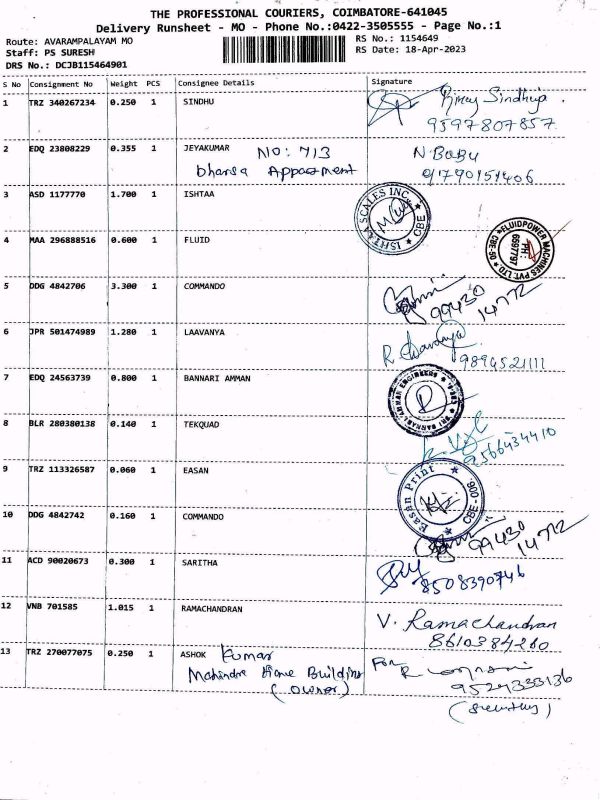 THE PROFESSIONAL COURIERS, COIMBATORE-641045
Delivery Runsheet - MO - Phone No.:0422-3505555 - Page No.:1
Route: AVARAMPALAYAM MO
RS No.: 1154649
Staff: PS SURESH
RS Date: 18-Apr-2023
DRS No.: DCJB115464901
S No Consignment No Weight PCS Consignee Details Signature
1 TRZ 340267234 0.250 1 SINDHU
Sindhuja.
9597807857
2 EDQ 23808229 0.355 1 JEYAKUMAR NO: 713 N.BABU
Appartment 9790151406
3 ASD 1177770 1.700 1 ISHTAA
ISHTAA SCALES INC. CBE
4 MAA 296888516 0.600 1 FLUID
FLUIDPOWER MACHINES PVT. LTD CBE-50
PH: 6597797
5 DDG 4842706 3.300 1 COMMANDO
99430
14772
6 JPR 501474989 1.280 1 LAAVANYA
9894521111
7 EDQ 24563739 0.800 1 BANNARI AMMAN
8 BLR 280380138 0.140 1 TEKQUAD
9566434410
9 TRZ 113326587 0.060 1 EASAN
Easan Print CBE-006.
10 DDG 4842742 0.160 1 COMMANDO
99430
14772
11 ACD 90020673 0.300 1 SARITHA
8508390746
12 VNB 701585 1.015 1 RAMACHANDRAN
V. Ramachandran
8610384260
13 TRZ 270077075 0.250 1 ASHOK Kumar For
Mahindra Home Building
(owner)
9524333136